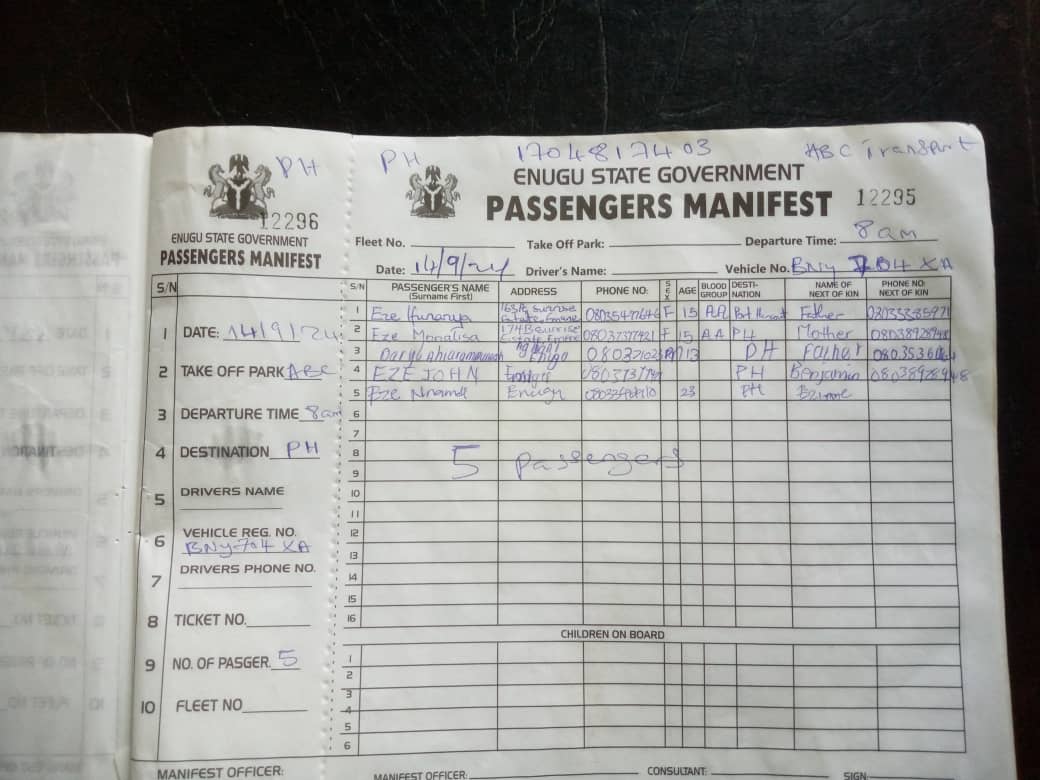 PH
12296
ENUGU STATE GOVERNMENT
PASSENGERS MANIFEST
S/N
1 DATE: 14/9/24
2 TAKE OFF PARK ABC
3 DEPARTURE TIME 8am
4 DESTINATION PH
5 DRIVERS NAME
6 VEHICLE REG. NO.
BNY-704 XA
7 DRIVERS PHONE NO.
8 TICKET NO.
9 NO. OF PASGER. 5
10 FLEET NO
MANIFEST OFFICER:
PH 1704817403 ABC Transport
ENUGU STATE GOVERNMENT
PASSENGERS MANIFEST 12295
Fleet No. Take Off Park: Departure Time: 8am
Date: 14/9/24 Driver's Name: Vehicle No. BNY XA
S/N PASSENGER'S NAME (Surname First) ADDRESS PHONE NO: SEX AGE BLOOD GROUP DESTI-NATION NAME OF NEXT OF KIN PHONE NO: NEXT OF KIN
1 Eze Ifunanya Estate F 15 AA Father
2 Eze Monalisa Estate 08037377421 F 15 AA PH Mother
3 13 PH Father
4 EZE JOHN PH Benjamin 08038928948
5 Eze Nnamdi Enugu 23 PH
6
7
8 5 passengers
9
10
11
12
13
14
15
16
CHILDREN ON BOARD
1
2
3
4
5
6
MANIFEST OFFICER: CONSULTANT: SIGN